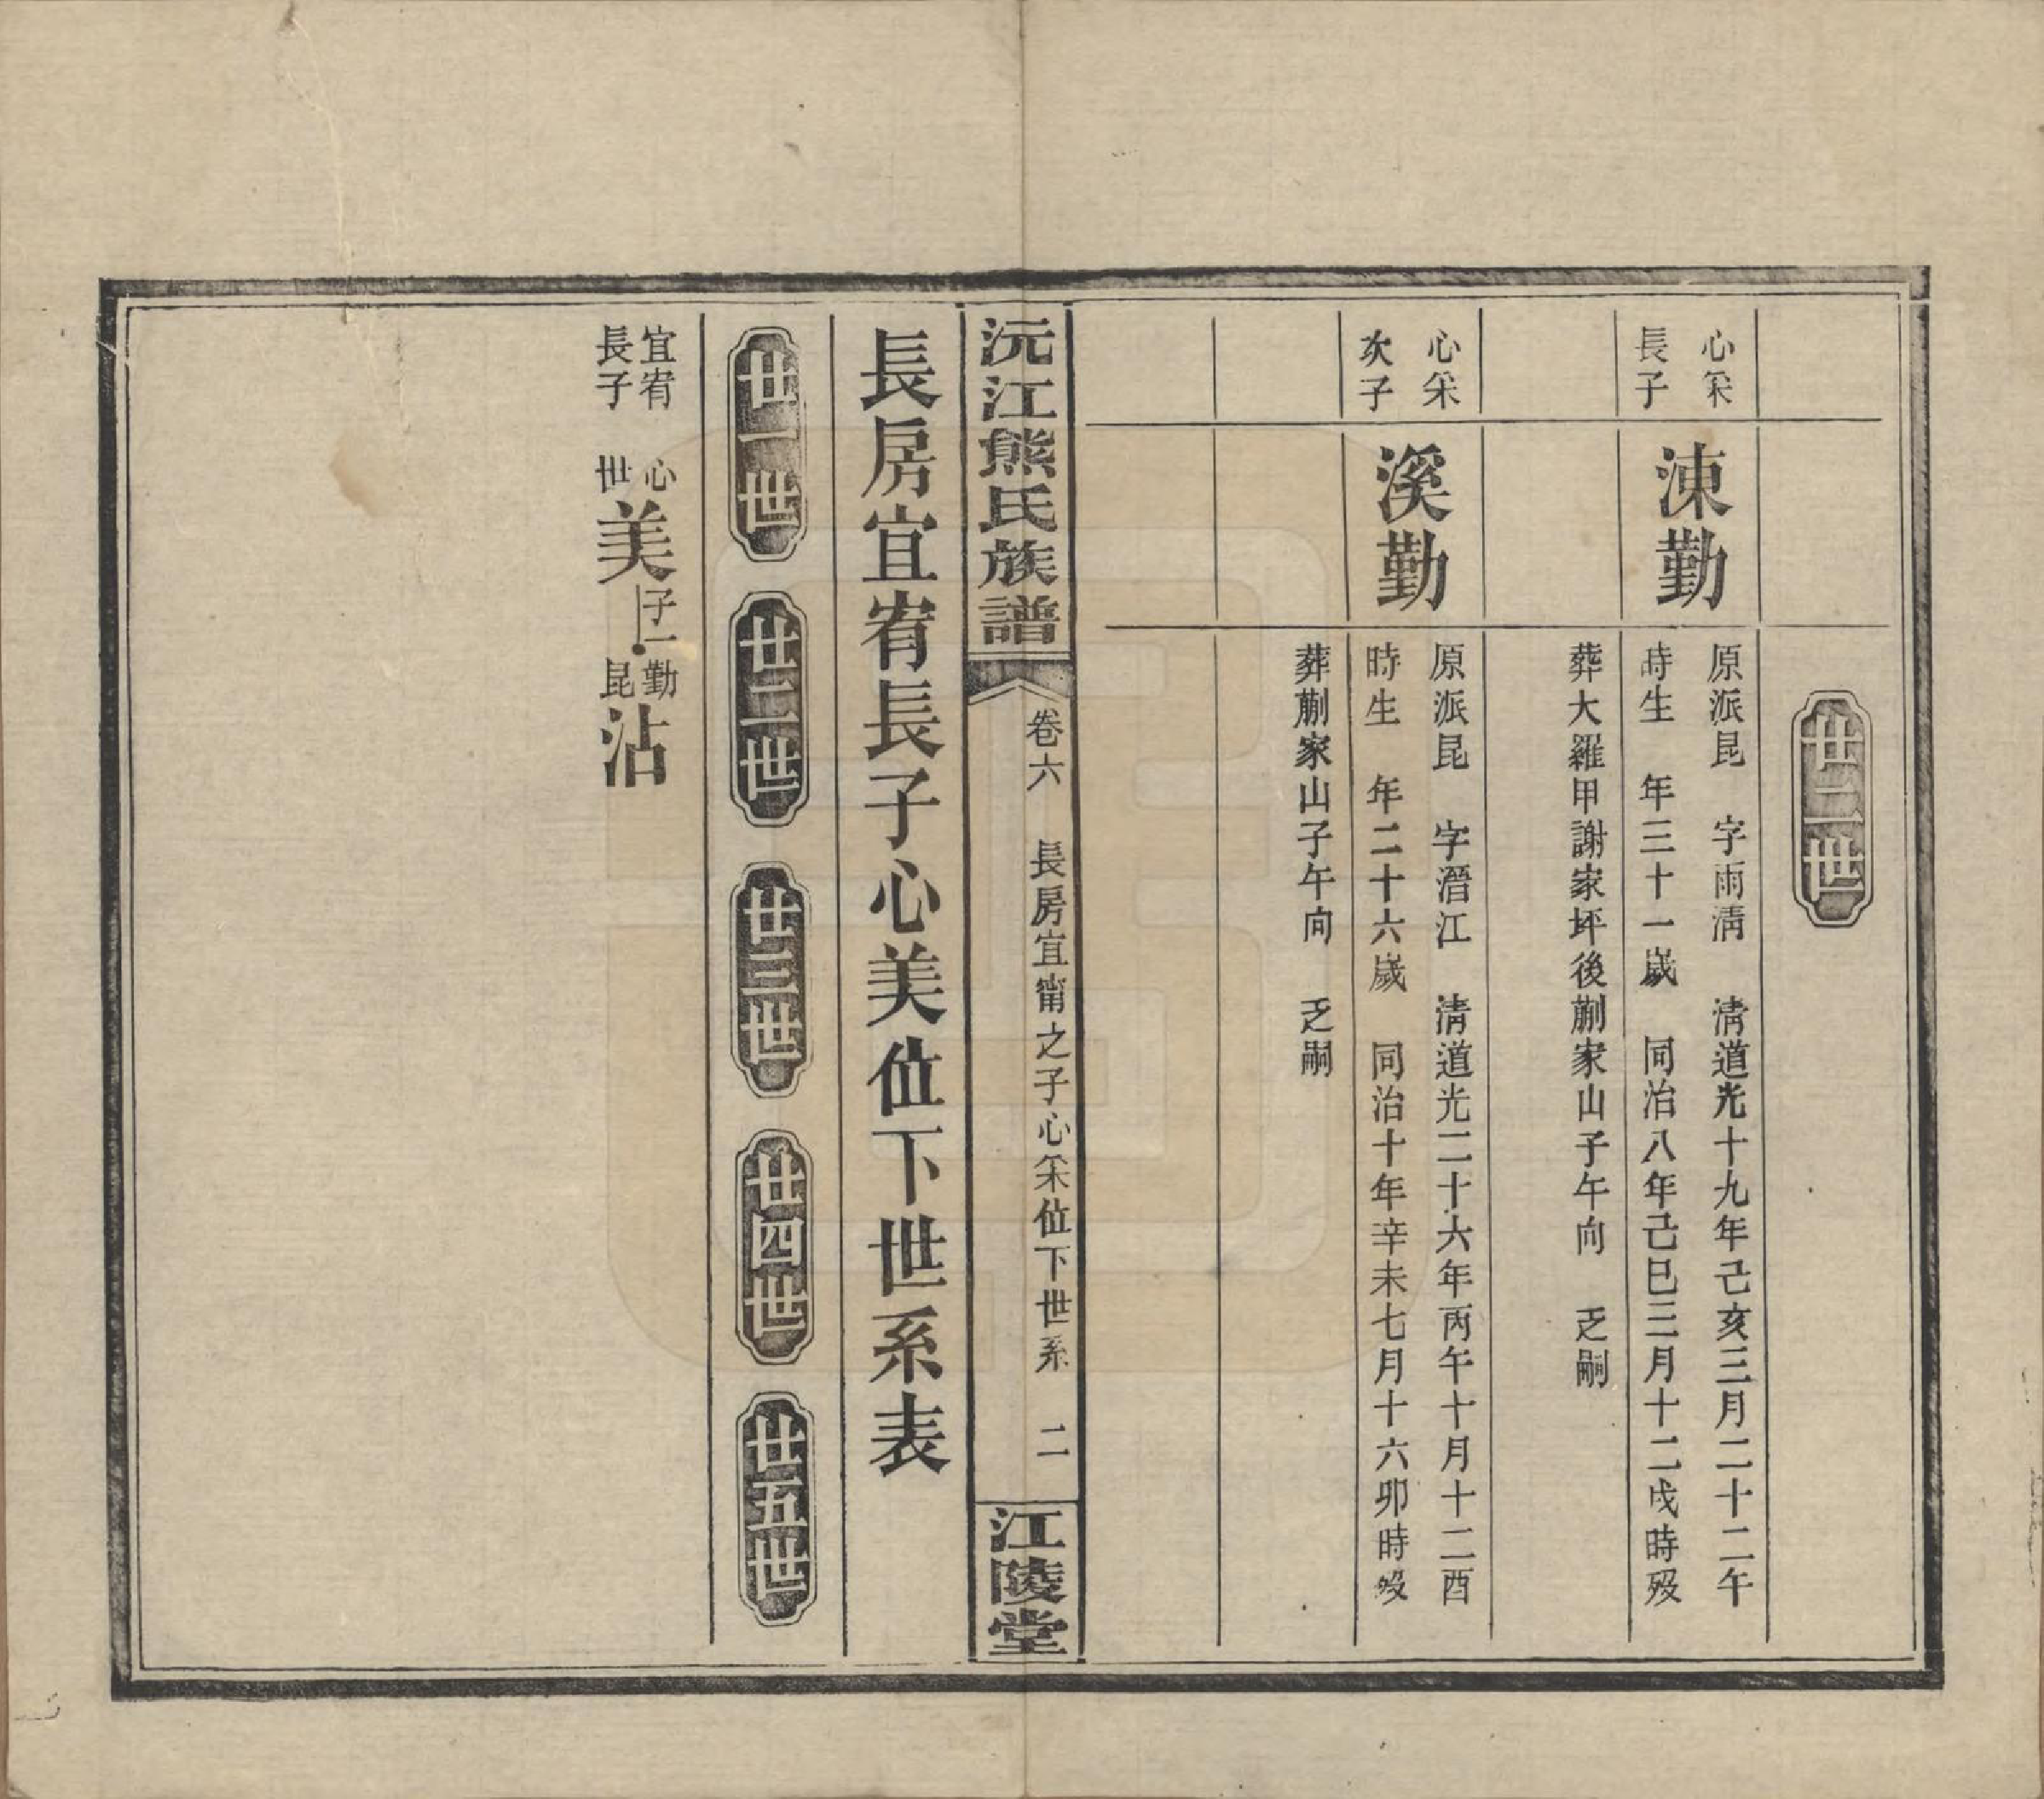 廿二世
心寀
長子
涷勤
原派昆　字雨清　清道光十九年己亥三月二十二午
時生　年三十一歲　同治八年己巳三月十二戌時殁
葬大羅甲謝家坪後蒯家山子午向　乏嗣
心寀
次子
溪勤
原派昆　字潛江　清道光二十六年丙午十月十二酉
時生　年二十六歲　同治十年辛未七月十六卯時殁
葬蒯家山子午向　乏嗣
沅江熊氏族譜
卷六　長房宜甯之子心寀位下世系　二
江陵堂
長房宜宥長子心美位下世系表
廿一世
廿二世
廿三世
廿四世
廿五世
宜宥
長子
心
世
美
子一
勤
昆
沾